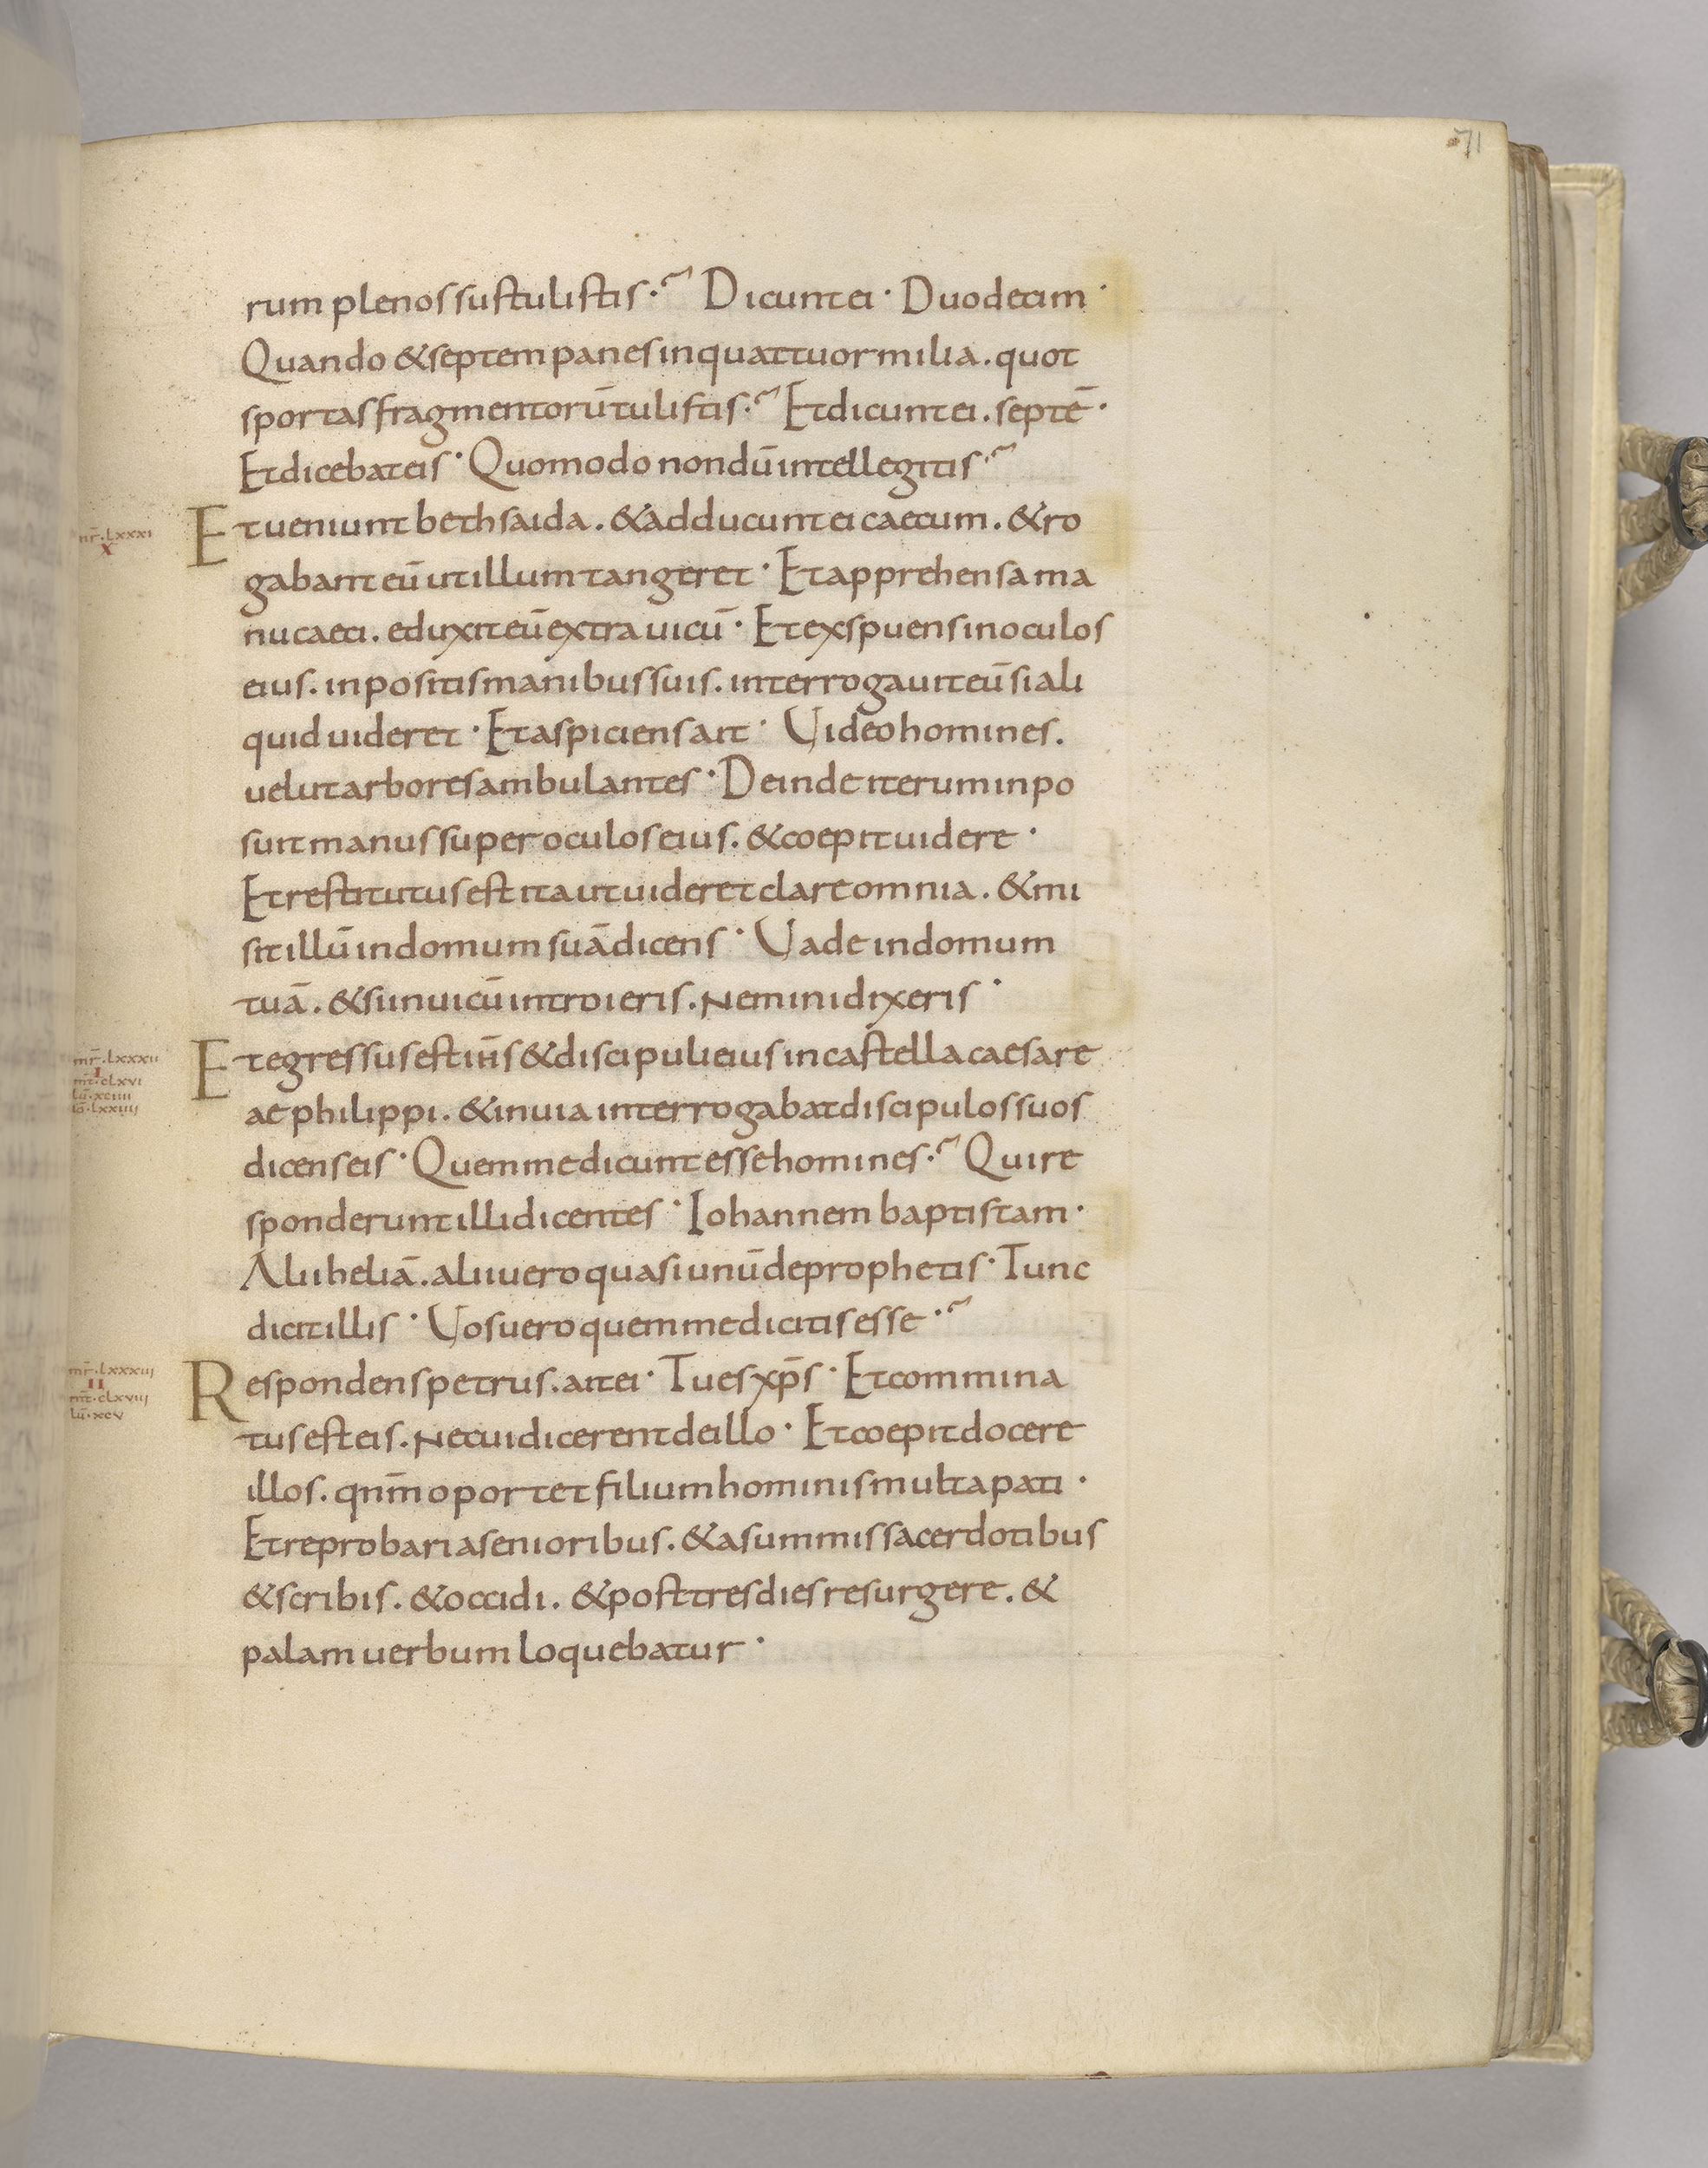 71
rum plenos sustulistis·? Dicunt ei· Duodecim·
Quando & septem panes in quattuor milia. quot
sportas fragmentorū tulistis·? Et dicunt ei. septē·
Et dicebat eis· Quomodo nondū intellegitis·?
mr̄. lxxxi
x
Et ueniunt bethsaida. & adducunt ei caecum. & ro
gabant eū ut illum tangeret· Et apprehensa ma
nu caeci. eduxit eū extra uicū· Et exspuens in oculos
eius. inpositis manibus suis. interrogauit eū si ali
quid uideret· Et aspiciens ait· Video homines.
uelut arbores ambulantes· Deinde iterum inpo
suit manus super oculos eius. & coepit uidere·
Et restitutus est ita ut uideret clare omnia. & mi
sit illū in domum suā dicens· Vade in domum
tuā. & si in uicū introieris. Nemini dixeris·
mr̄. lxxxii
I
mt̄. clxvi
lū. xciiii
iō. lxxiiii
Et egressus est ih̄s & discipuli eius in castella caesare
ae philippi. & in uia interrogabat discipulos suos
dicens eis· Quem me dicunt esse homines·? Qui re
sponderunt illi dicentes· Iohannem baptistam·
Alii heliā. alii uero quasi unū de prophetis· Tunc
dicit illis· Vos uero quem me dicitis esse·?
mr̄. lxxxiii
II
mt̄. clxviii
lū. xcv
Respondens petrus. ait ei· Tu es xp̄s· Et commina
tus est eis. Ne cui dicerent de illo· Et coepit docere
illos. qnm̄ oportet filium hominis multa pati·
Et reprobari a senioribus. & a summis sacerdotibus
& scribis. & occidi. & post tres dies resurgere. &
palam uerbum loquebatur·